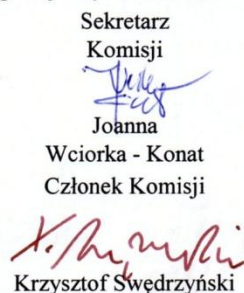 Sekretarz
Komisji
Joanna
Wciorka - Konat
Członek Komisji
Krzysztof Swędrzyński